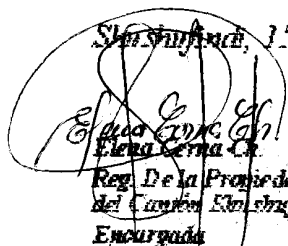 Shushufindi, 15
Elena Cerna Ch.
Elena Cerna Ch.
Reg. De la Propiedad
del Cantón Shushufindi
Encargada